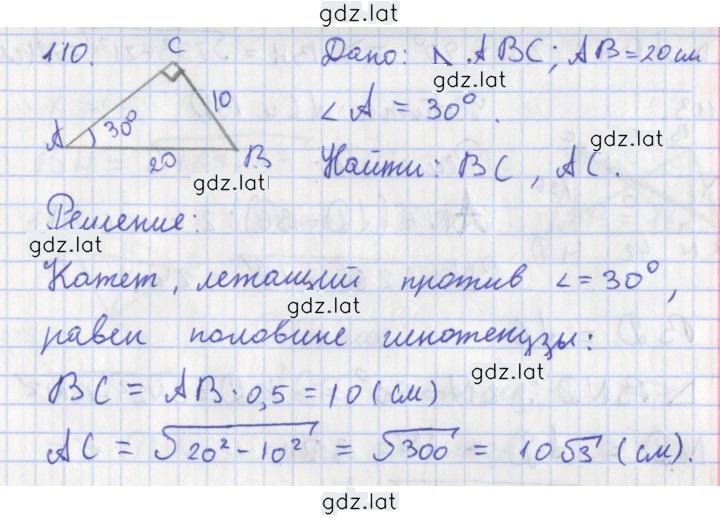 gdz.lat
110.
Дано: ⊿ ABC; AB = 20 см
∠A = 30°.
Найти: BC, AC.
C
10
A
30°
20
B
gdz.lat
gdz.lat
gdz.lat
Решение:
gdz.lat
Катет, лежащий против ∠ = 30°,
gdz.lat
равен половине гипотенузы:
gdz.lat
BC = AB · 0,5 = 10 (см)
AC = √20² - 10² = √300 = 10√3 (см).
gdz.lat